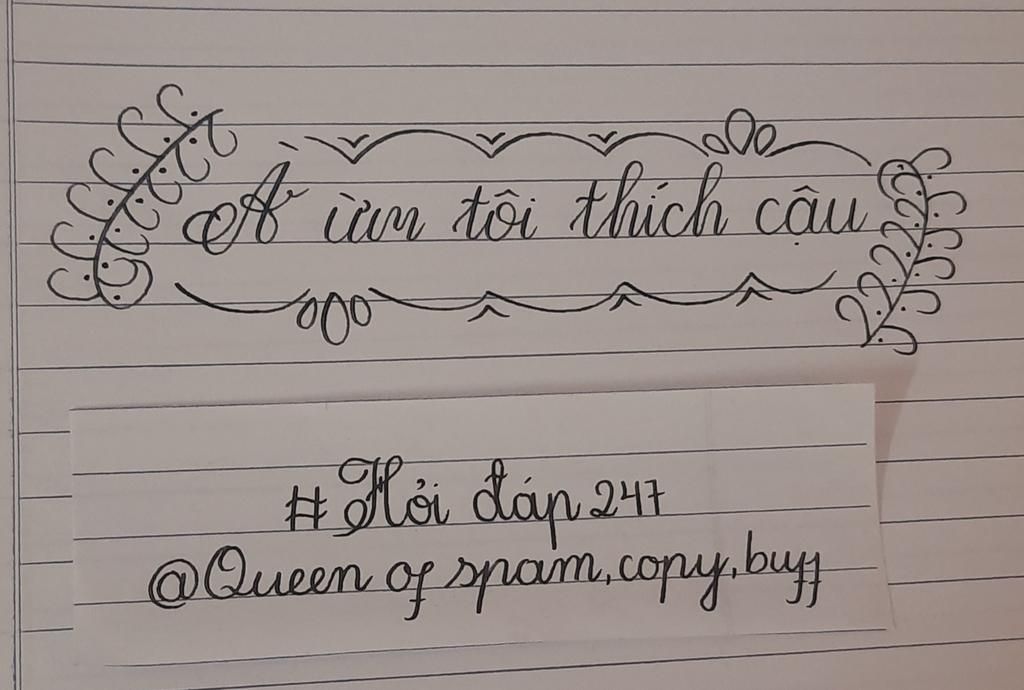 A ừm tôi thích cậu
# Hỏi đáp 247
@Queen of spam, copy, buff